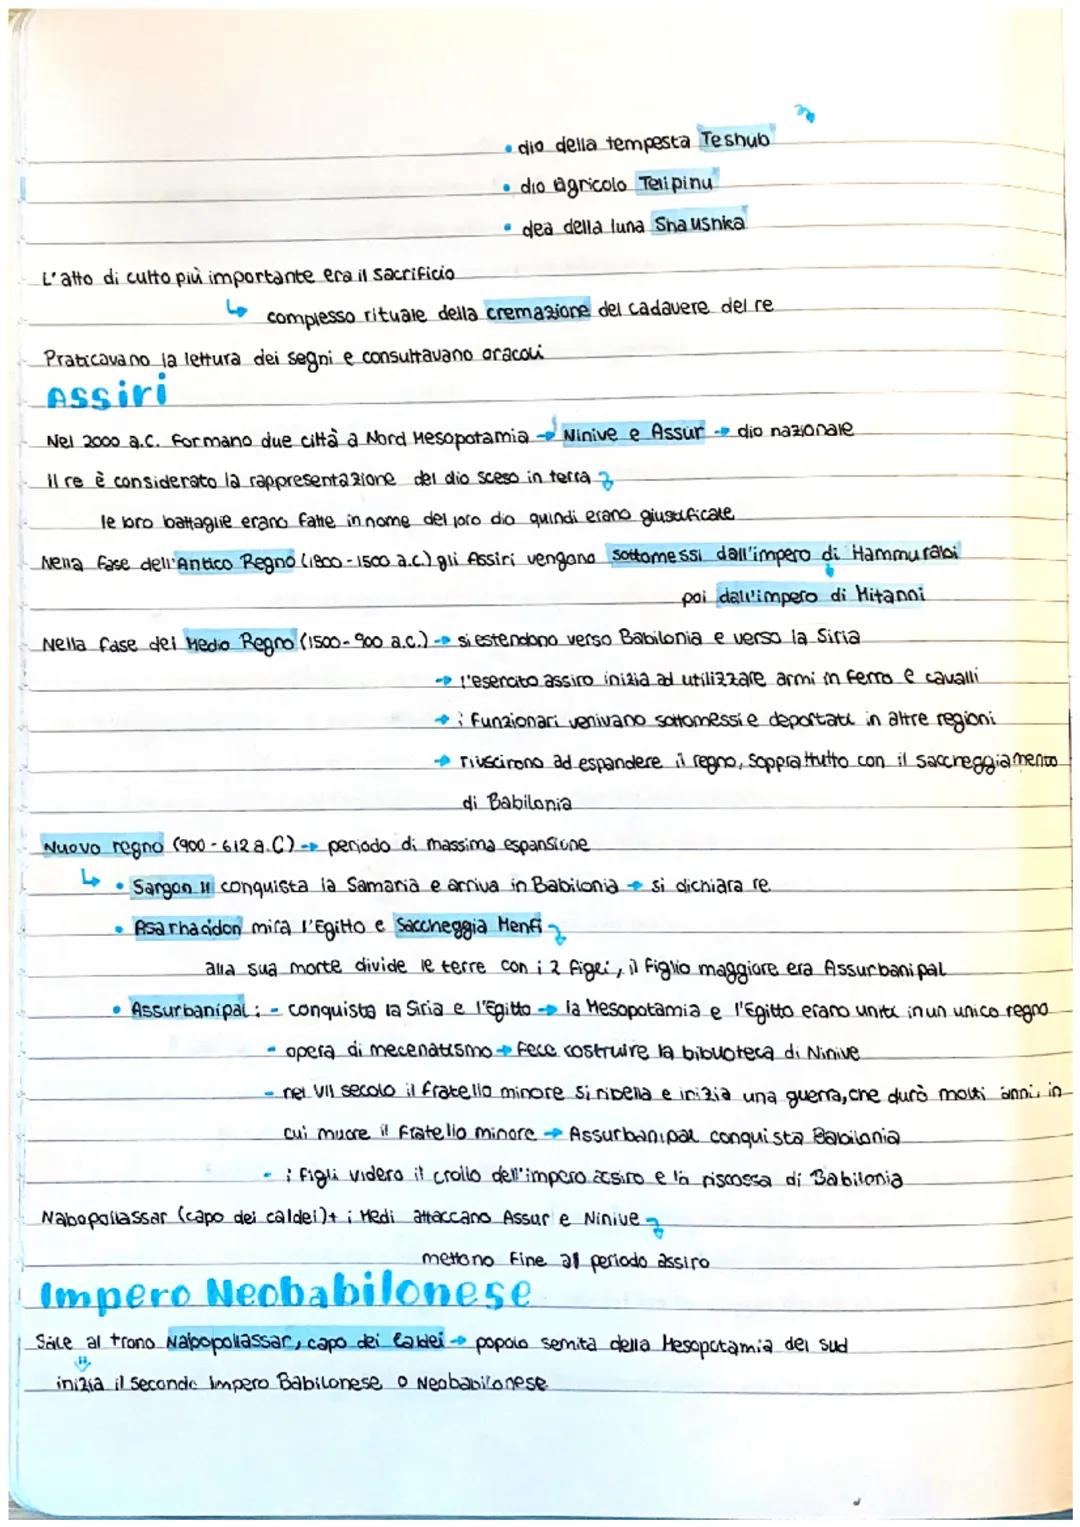 • dio della tempesta Teshub
• dio agricolo Telipinu
• dea della luna Shaushka
L'atto di culto più importante era il sacrificio
↳ complesso rituale della cremazione del cadavere del re
Praticavano la lettura dei segni e consultavano oracoli
Assiri
Nel 2000 a.C. formano due città a Nord Mesopotamia → Ninive e Assur → dio nazionale
il re è considerato la rappresentazione del dio sceso in terra
le loro battaglie erano fatte in nome del loro dio quindi erano giustificate
Nella fase dell'Antico Regno (1800-1500 a.C.) gli Assiri vengono sottomessi dall'impero di Hammurabi
poi dall'impero di Mitanni
Nella fase del Medio Regno (1500-900 a.C.) → si estendono verso Babilonia e verso la Siria
→ l'esercito assiro inizia ad utilizzare armi in ferro e cavalli
→ i funzionari venivano sottomessi e deportati in altre regioni
→ riuscirono ad espandere il regno, soprattutto con il saccheggiamento
di Babilonia
Nuovo regno (900-612 a.C) → periodo di massima espansione
↳ • Sargon II conquista la Samaria e arriva in Babilonia → si dichiara re
• Asarhaddon mira l'Egitto e saccheggia Menfi
alla sua morte divide le terre con i 2 figli, il figlio maggiore era Assurbanipal
• Assurbanipal: - conquista la Siria e l'Egitto → la Mesopotamia e l'Egitto erano uniti in un unico regno
- opera di mecenatismo → fece costruire la biblioteca di Ninive
- nel VII secolo il fratello minore si ribella e inizia una guerra, che durò molti anni, in
cui muore il fratello minore → Assurbanipal conquista Babilonia
- i figli videro il crollo dell'impero assiro e la riscossa di Babilonia
Nabopollassar (capo dei caldei) + i Medi attaccano Assur e Ninive
mettono fine al periodo assiro
Impero Neobabilonese
Sale al trono Nabopollassar, capo dei Caldei → popolo semita della Mesopotamia del sud
inizia il secondo Impero Babilonese o Neobabilonese